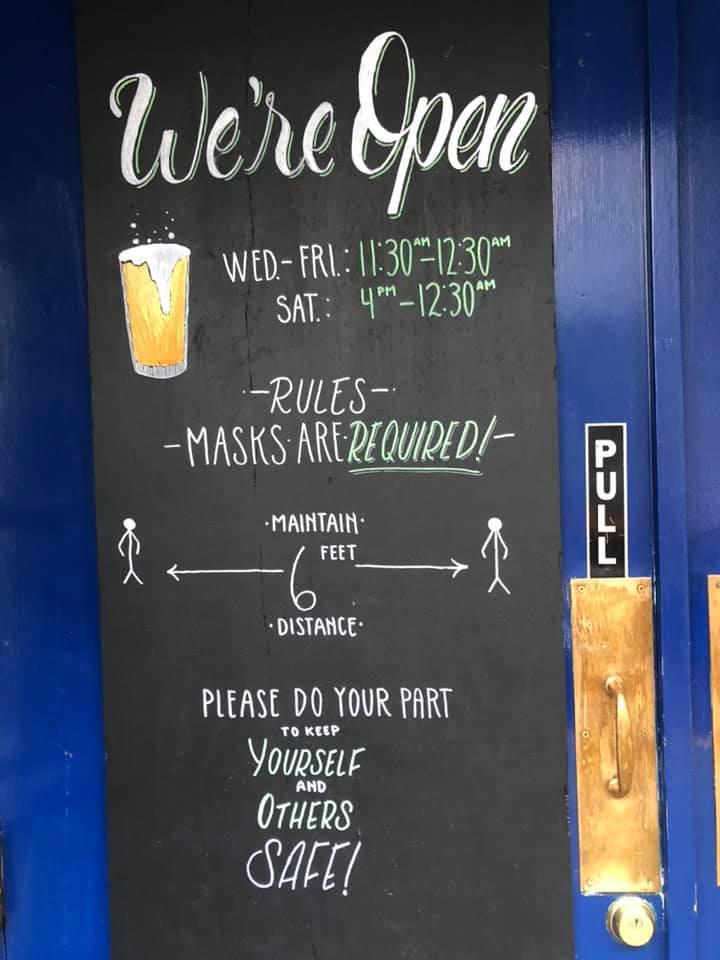 We're Open
WED.- FRI.: 11:30AM-12:30AM
SAT.: 4PM-12:30AM
-RULES-
-MASKS ARE REQUIRED!-
·MAINTAIN·
6 FEET
·DISTANCE·
PLEASE DO YOUR PART
TO KEEP
YOURSELF
AND
OTHERS
SAFE!
PULL